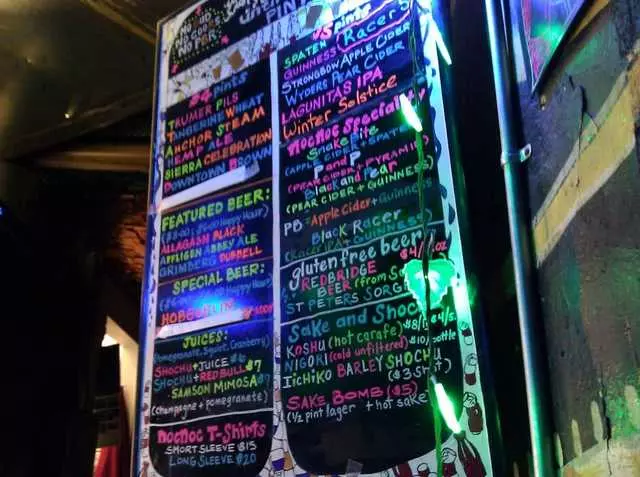 $4 pints
TRUMER PILS
TANGERINE WHEAT
ANCHOR STEAM
HEMP ALE
SIERRA CELEBRATION
DOWNTOWN BROWN
FEATURED BEER:
Happy Hour)
ALLAGASH BLACK
AFFLIGEN ABBEY ALE
GRIMBERG DUBBELL
SPECIAL BEER:
Happy Hour)
HOBGOBLIN
JUICES:
(Pomegranate, Squirt, Cranberry)
SHOCHU + JUICE
SHOCHU + RED BULL $7
SAMSON MIMOSA $7
(champagne + pomegranate)
NOCNOC T-SHIRTS
SHORT SLEEVE $15
LONG SLEEVE $20
$5 pints
SPATEN
GUINNESS Racer 5
STRONGBOW APPLE CIDER
WYDERS PEAR CIDER
LAGUNITAS IPA
Winter Solstice
NOCNOC Speciality
Snake Bite
(APPLE CIDER + SPATEN)
P and P
(PEAR CIDER + PYRAMID)
Black and Pear
(PEAR CIDER + GUINNESS)
PB = Apple Cider + Guinness
Black Racer
(Racer IPA + GUINNESS)
gluten free beer
REDBRIDGE $4/ oz
BEER (from
ST PETERS SORG
Sake and Shochu
KOSHU (hot carafe) $8/ $4/s
NIGORI (cold unfiltered) $10/bottle
IICHIKO BARLEY SHOCHU
($3 shot)
SAKE BOMB ($5)
(1/2 pint lager + hot sake)